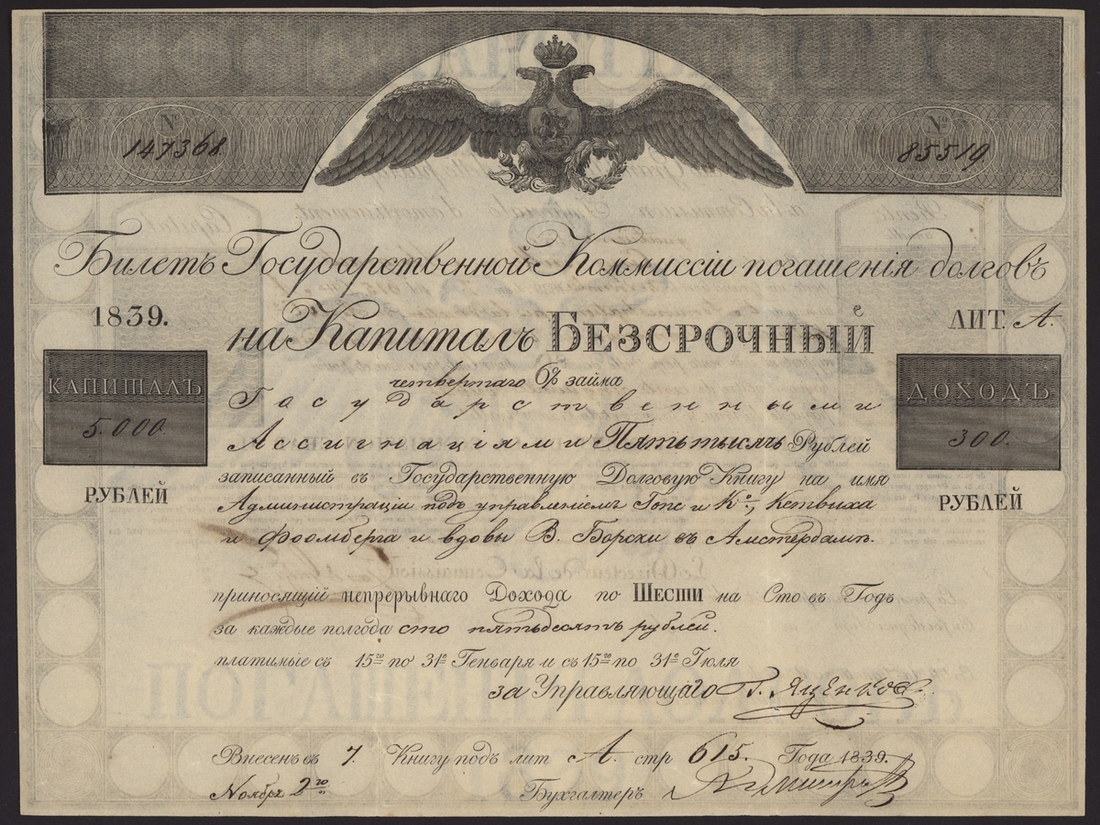 № 147368
№ 85519
Билетъ Государственной Коммиссіи погашенія долговъ
1839.
на Капиталъ БЕЗСРОЧНЫЙ
ЛИТ. А.
КАПИТАЛЪ
5.000.
РУБЛЕЙ
ДОХОДЪ
300.
РУБЛЕЙ
четвертаго 6% займа
Государственными
Ассигнаціями Пять тысячь Рублей
записанный въ Государственную Долговую Книгу на имя
Администраціи подъ управленіемъ Гопе и Кº, Кетвиха
и Фоомберга и вдовы В. Борски въ Амстердамѣ.
приносящій непрерывнаго Дохода по ШЕСТИ на Сто въ Годъ
за каждые полгода сто пятьдесятъ рублей.
платимые съ 15го по 31е Генваря и съ 15го по 31е Іюля
за Управляющаго
Внесенъ въ 7. Книгу подъ лит А. стр 615. Года 1839.
Ноябрь 2го
Бухгалтеръ